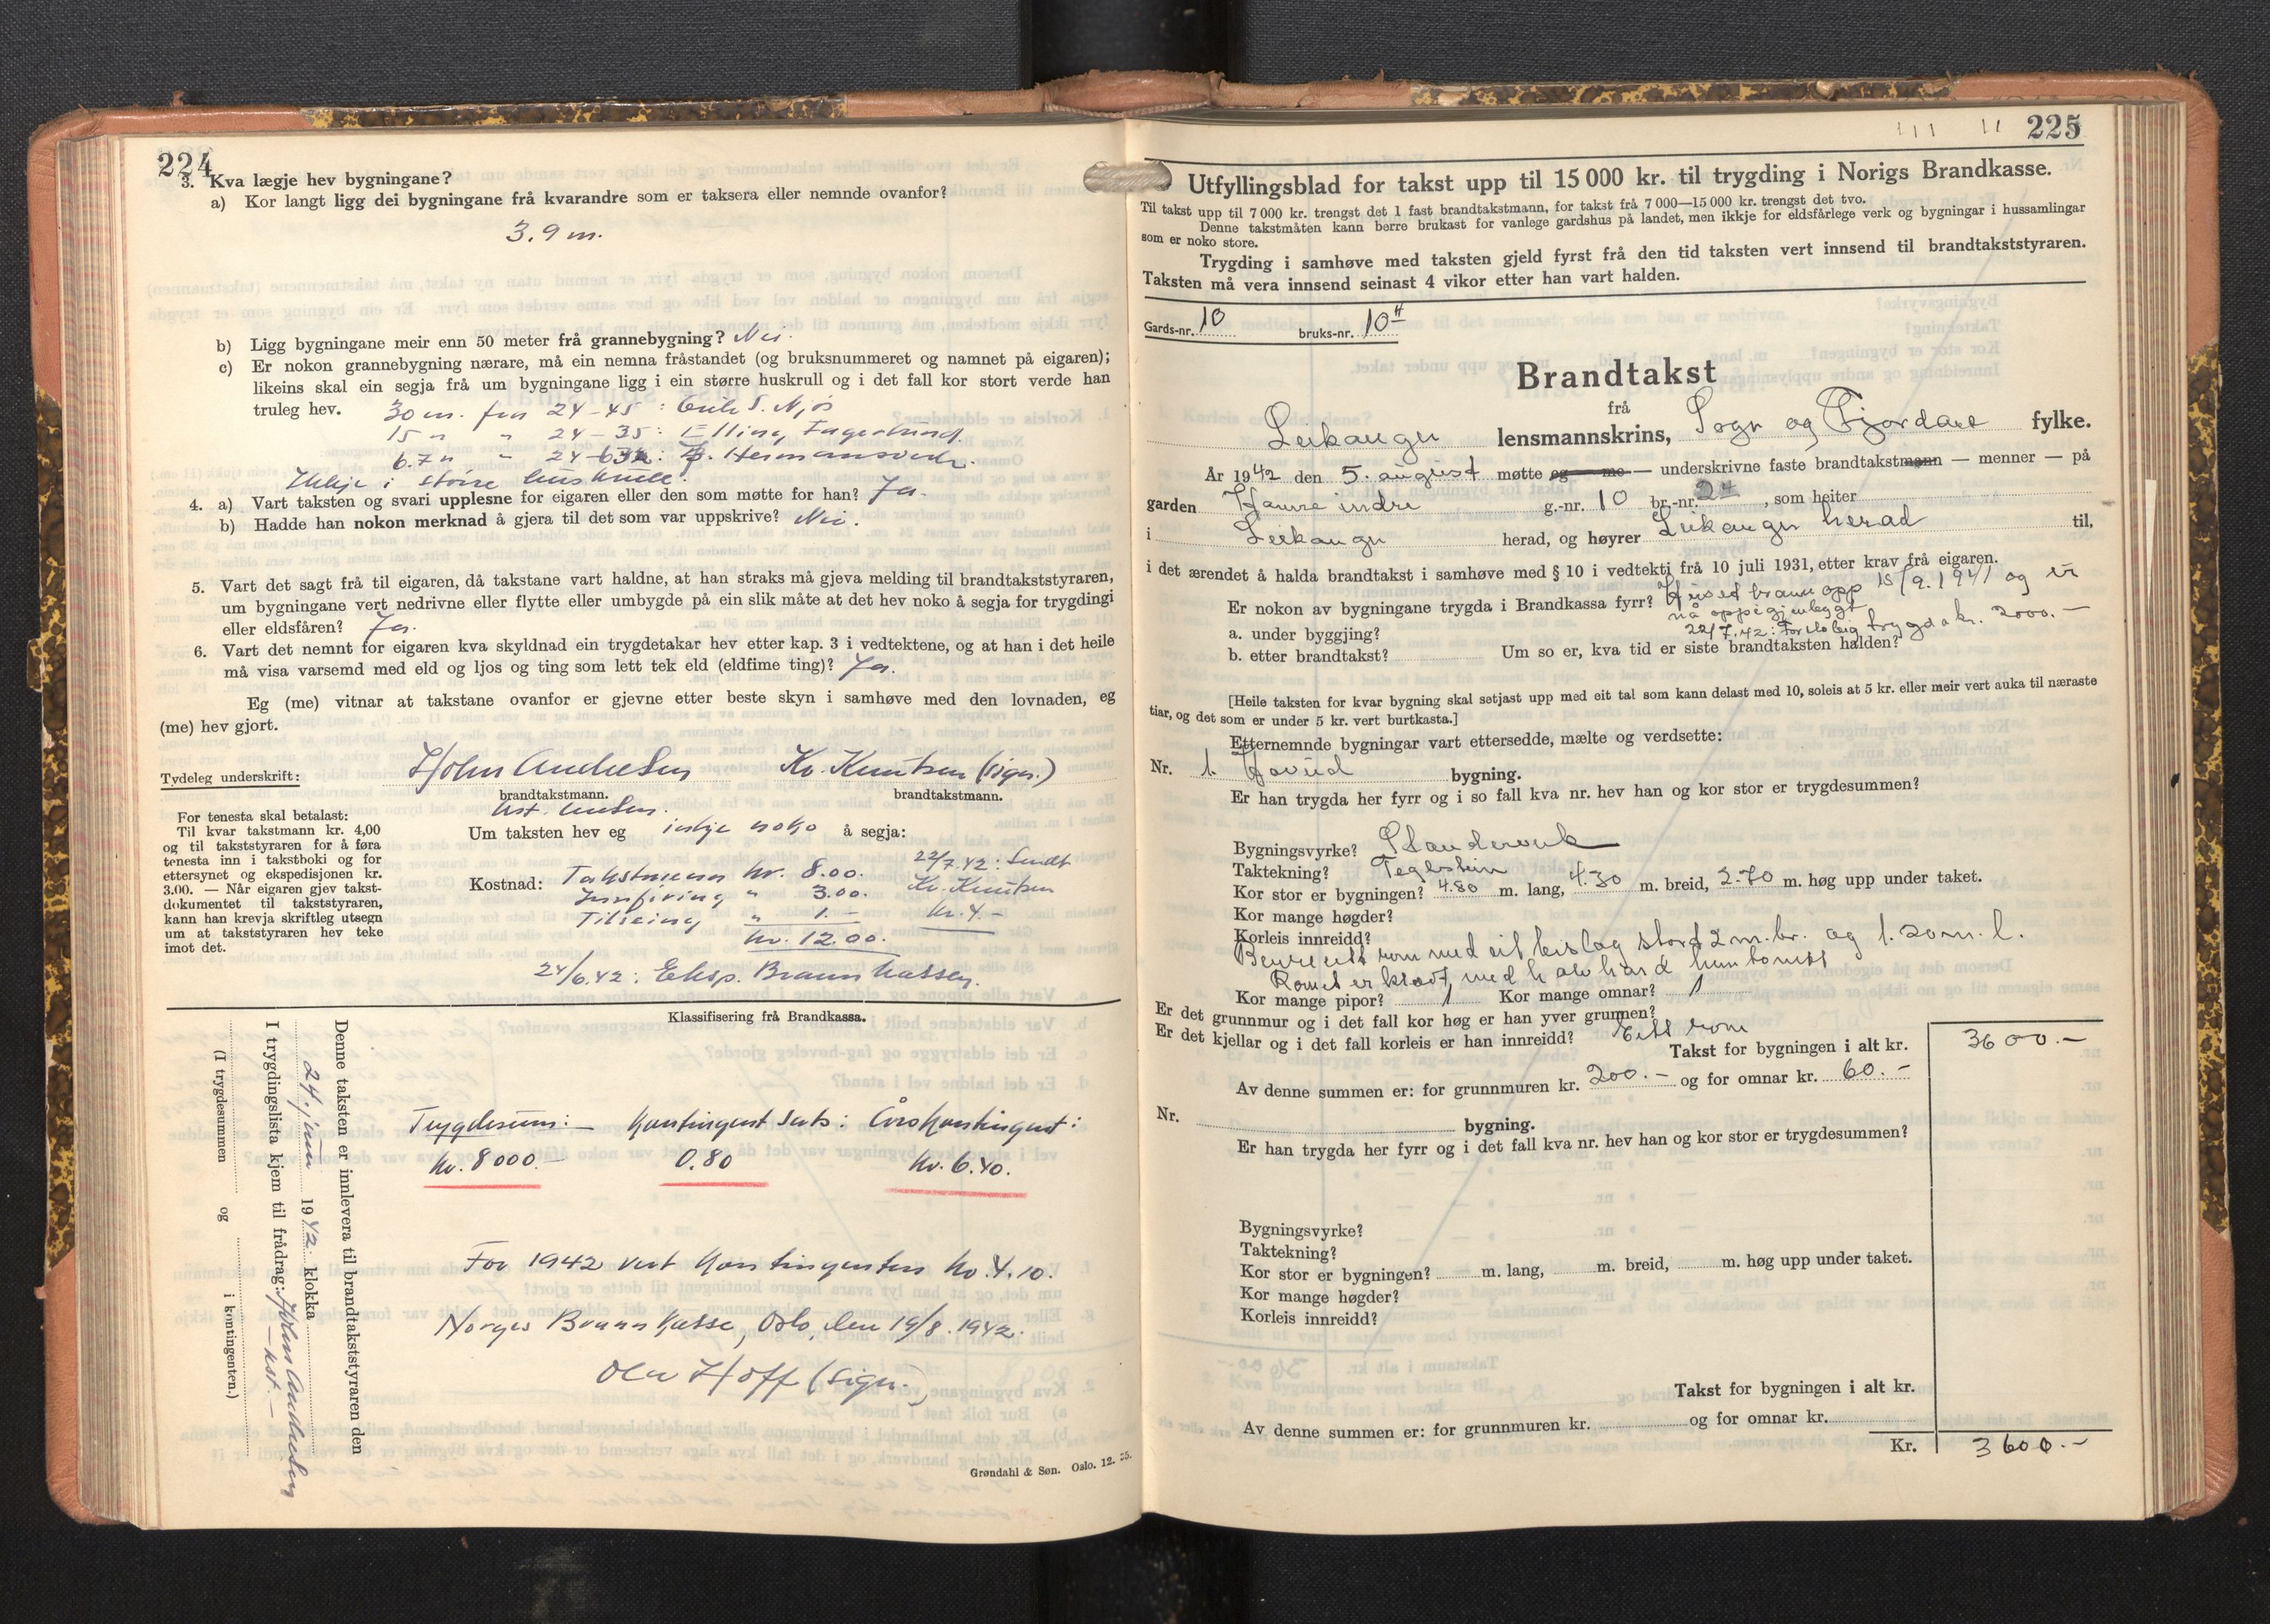 224
3. Kva lægje hev bygningane?
a) Kor langt ligg dei bygningane frå kvarandre som er taksera eller nemnde ovanfor?
3.9 m.
b) Ligg bygningane meir enn 50 meter frå grannebygning? Nei.
c) Er nokon grannebygning nærare, må ein nemna fråstandet (og bruksnummeret og namnet på eigaren);
likeins skal ein segja frå um bygningane ligg i ein større huskrull og i det fall kor stort verde han
truleg hev. 30 m. fra 24-45: Erik S. Njøs
15 " " 24-35: Elling Fagerlund.
6.7 " " 24 Hermansverk.
Ikkje i større huskrull.
4. a) Vart taksten og svari upplesne for eigaren eller den som møtte for han? Ja.
b) Hadde han nokon merknad å gjera til det som var uppskrive? Nei.
5. Vart det sagt frå til eigaren, då takstane vart haldne, at han straks må gjeva melding til brandtakststyraren,
um bygningane vert nedrivne eller flytte eller umbygde på ein slik måte at det hev noko å segja for trygdingi
eller eldsfåren? Ja.
6. Vart det nemnt for eigaren kva skyldnad ein trygdetakar hev etter kap. 3 i vedtektene, og at han i det heile
må visa varsemd med eld og ljos og ting som lett tek eld (eldfime ting)? Ja.
Eg (me) vitnar at takstane ovanfor er gjevne etter beste skyn i samhøve med den lovnaden, eg
(me) hev gjort.
Tydeleg underskrift: John Andresen Kr. Knutsen (sign.)
brandtakstmann. brandtakstmann.
For tenesta skal betalast:
Til kvar takstmann kr. 4,00
og til takststyraren for å føra
tenesta inn i takstboki og for
ettersynet og ekspedisjonen kr.
3.00. — Når eigaren gjev takst-
dokumentet til takststyraren,
kann han krevja skriftleg utsegn
um at takststyraren hev teke
imot det.
Um taksten hev eg ikkje noko å segja:
Kostnad: Takstmenn kr. 8.00.
Innføring " 3.00.
" 1.-
kr. 12.00.
22/7.42: Sendt
Kr. Knutsen
kr. 4.-
24/6.42: Eksp. Brannkassen.
Klassifisering frå Brandkassa.
Denne taksten er innlevera til brandtakststyraren den
24. juni 1942. klokka
I trygdingslista kjem til frådrag: John Andresen
- kst -
(I trygdesummen og i kontingenten.)
Trygdesum:- Kontingent sats: Årskontingent:
Kr. 8000.- 0.80 Kr. 6.40.
For 1942 vert kontingenten kr. 4.10.
Norges Brannkasse, Oslo, den 19/8.1942.
Ola Hoff (sign.)
Grøndahl & Søn. Oslo. 12. 35.
225
Utfyllingsblad for takst upp til 15 000 kr. til trygding i Norigs Brandkasse.
Til takst upp til 7 000 kr. trengst det 1 fast brandtakstmann, for takst frå 7 000—15 000 kr. trengst det tvo.
Denne takstmåten kann berre brukast for vanlege gardshus på landet, men ikkje for eldsfårlege verk og bygningar i hussamlingar
som er noko store.
Trygding i samhøve med taksten gjeld fyrst frå den tid taksten vert innsend til brandtakststyraren.
Taksten må vera innsend seinast 4 vikor etter han vart halden.
Gards-nr. 10 bruks-nr.
Brandtakst
frå
Leikanger lensmannskrins, Sogn og Fjordane fylke.
År 1942 den 5. august møtte og me — underskrivne faste brandtakstmann — menner — på
garden Hamre indre g.-nr. 10 br.-nr. 24, som heiter
i Leikanger herad, og høyrer Leikanger herad til,
i det ærendet å halda brandtakst i samhøve med § 10 i vedtekti frå 10 juli 1931, etter krav frå eigaren.
Er nokon av bygningane trygda i Brandkassa fyrr? Huset brann opp 15/9.1941 og er
nå oppattbygt
a. under byggjing? 22/7.42: trygda kr. 2000.-
b. etter brandtakst? Um so er, kva tid er siste brandtaksten halden?
[Heile taksten for kvar bygning skal setjast upp med eit tal som kann delast med 10, soleis at 5 kr. eller meir vert auka til næraste
tiar, og det som er under 5 kr. vert burtkasta.]
Etternemnde bygningar vart ettersedde, mælte og verdsette:
Nr. 1. Hovud bygning.
Er han trygda her fyrr og i so fall kva nr. hev han og kor stor er trygdesummen?
Bygningsvyrke? Standerverk
Taktekning? Teglstein
Kor stor er bygningen? 4.80 m. lang, 4.30 m. breid, 2.70 m. høg upp under taket.
Kor mange høgder?
Korleis innreidd?
Berre eitt rom med eit bislag stort 2 m. br. og 1.20 m. l.
Romet er kledt med halvhard huntonitt
Kor mange pipor? 1 Kor mange omnar? 1
Er det grunnmur og i det fall kor høg er han yver grunnen?
Er det kjellar og i det fall korleis er han innreidd? Eitt rom
Takst for bygningen i alt kr. 3600.-
Av denne summen er: for grunnmuren kr. 200.- og for omnar kr. 60.-
Nr. bygning.
Er han trygda her fyrr og i det fall kva nr. hev han og kor stor er trygdesummen?
Bygningsvyrke?
Taktekning?
Kor stor er bygningen? m. lang, m. breid, m. høg upp under taket.
Kor mange høgder?
Korleis innreidd?
Takst for bygningen i alt kr.
Av denne summen er: for grunnmuren kr. og for omnar kr.
Kr. 3600.-